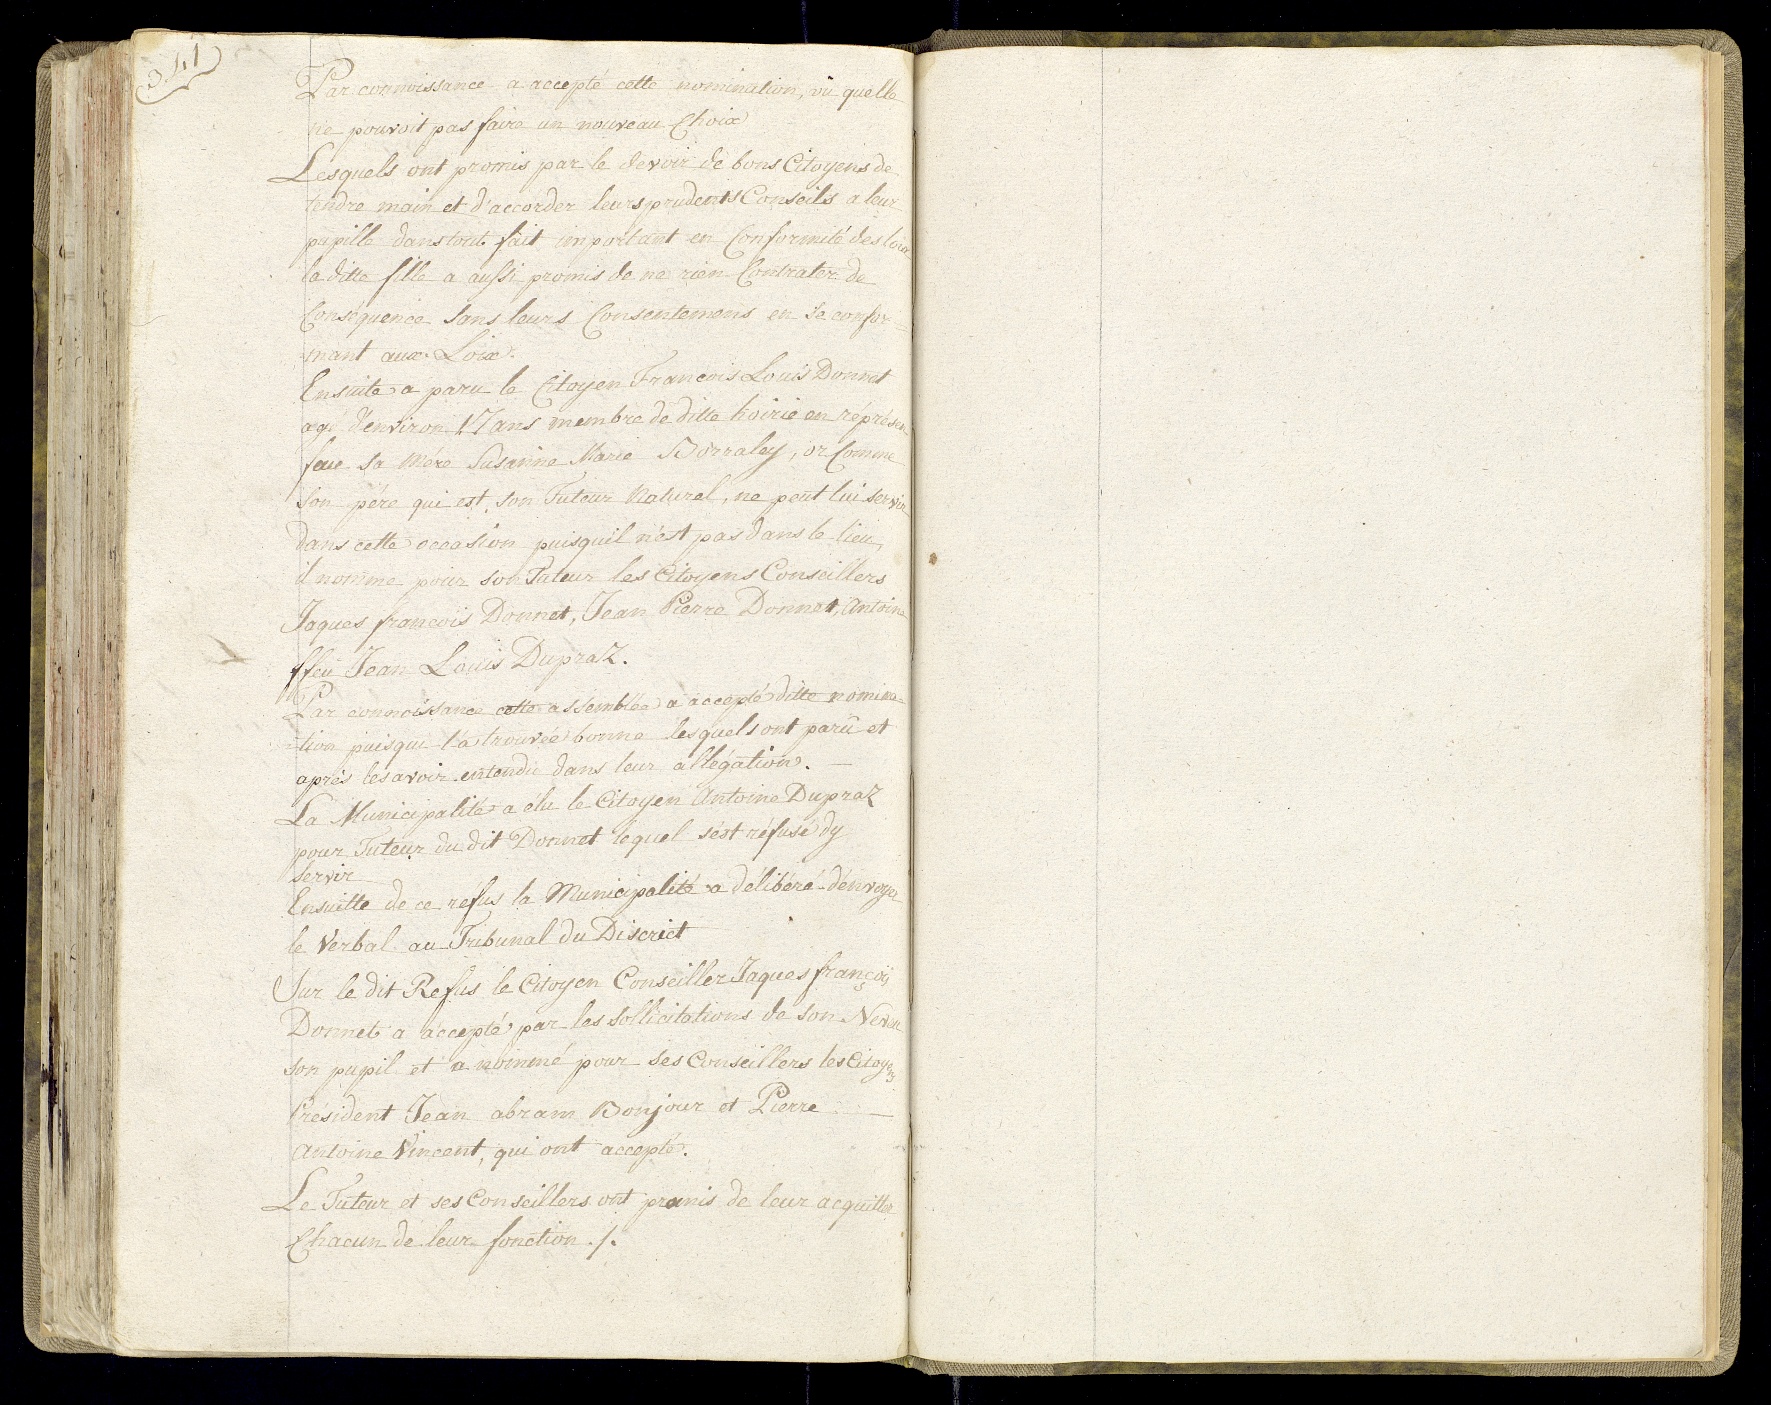 341
Par connoissance a accepté cette nomination, vû quelle
ne pouvoit pas faire un nouveau Choix
Lesquels ont promis par le devoir de bons Citoyens de
tendre main et d'accorder leurs prudents Conseils a leur
pupille dans tout fait important en Conformité des loix
la ditte fille a aussi promis de ne rien Contrater de
Conséquence sans leurs Consentemens en se confor-
mant aux Loix.
Ensuite a paru le Citoyen François Louis Donnet
agé d'environ 17 ans membre de ditte hoirie en représen
feue sa Mére Susanne Marie Borraley, or Comme
son pére qui est son Tuteur Naturel, ne peut lui servir
dans cette occasion puisquil n'est pas dans le lieu,
il nomme pour son Tuteur les Citoyens Conseillers
Jaques françois Donnet, Jean Pierre Donnet, Antoine
ffeu Jean Louis Dupraz.
Par connoissance cette assemblée a accepté ditte nomina-
-tion puisqui l'a trouvée bonne lesquels ont parû et
aprés les avoir entendu dans leur allégation. —
La Municipalité a élu le Citoyen Antoine Dupraz
pour Tuteur du dit Donnet lequel s'est réfusé dy
servir
Ensuitte de ce refus la Municipalité a délibéré d'envoyer
le Verbal au Tribunal du Discrict
Sur le dit Refus le Citoyen Conseiller Jaques françois
Donnet a accepté par les sollicitations de son Neveu
son pupil et a nommé pour ses Conseillers les Citoyens
Président Jean abram Bonjour et Pierre —
Antoine Vincent, qui ont accepté.
Le Tuteur et ses Conseillers ont promis de leur acquitter
Chacun de leur fonction ./.